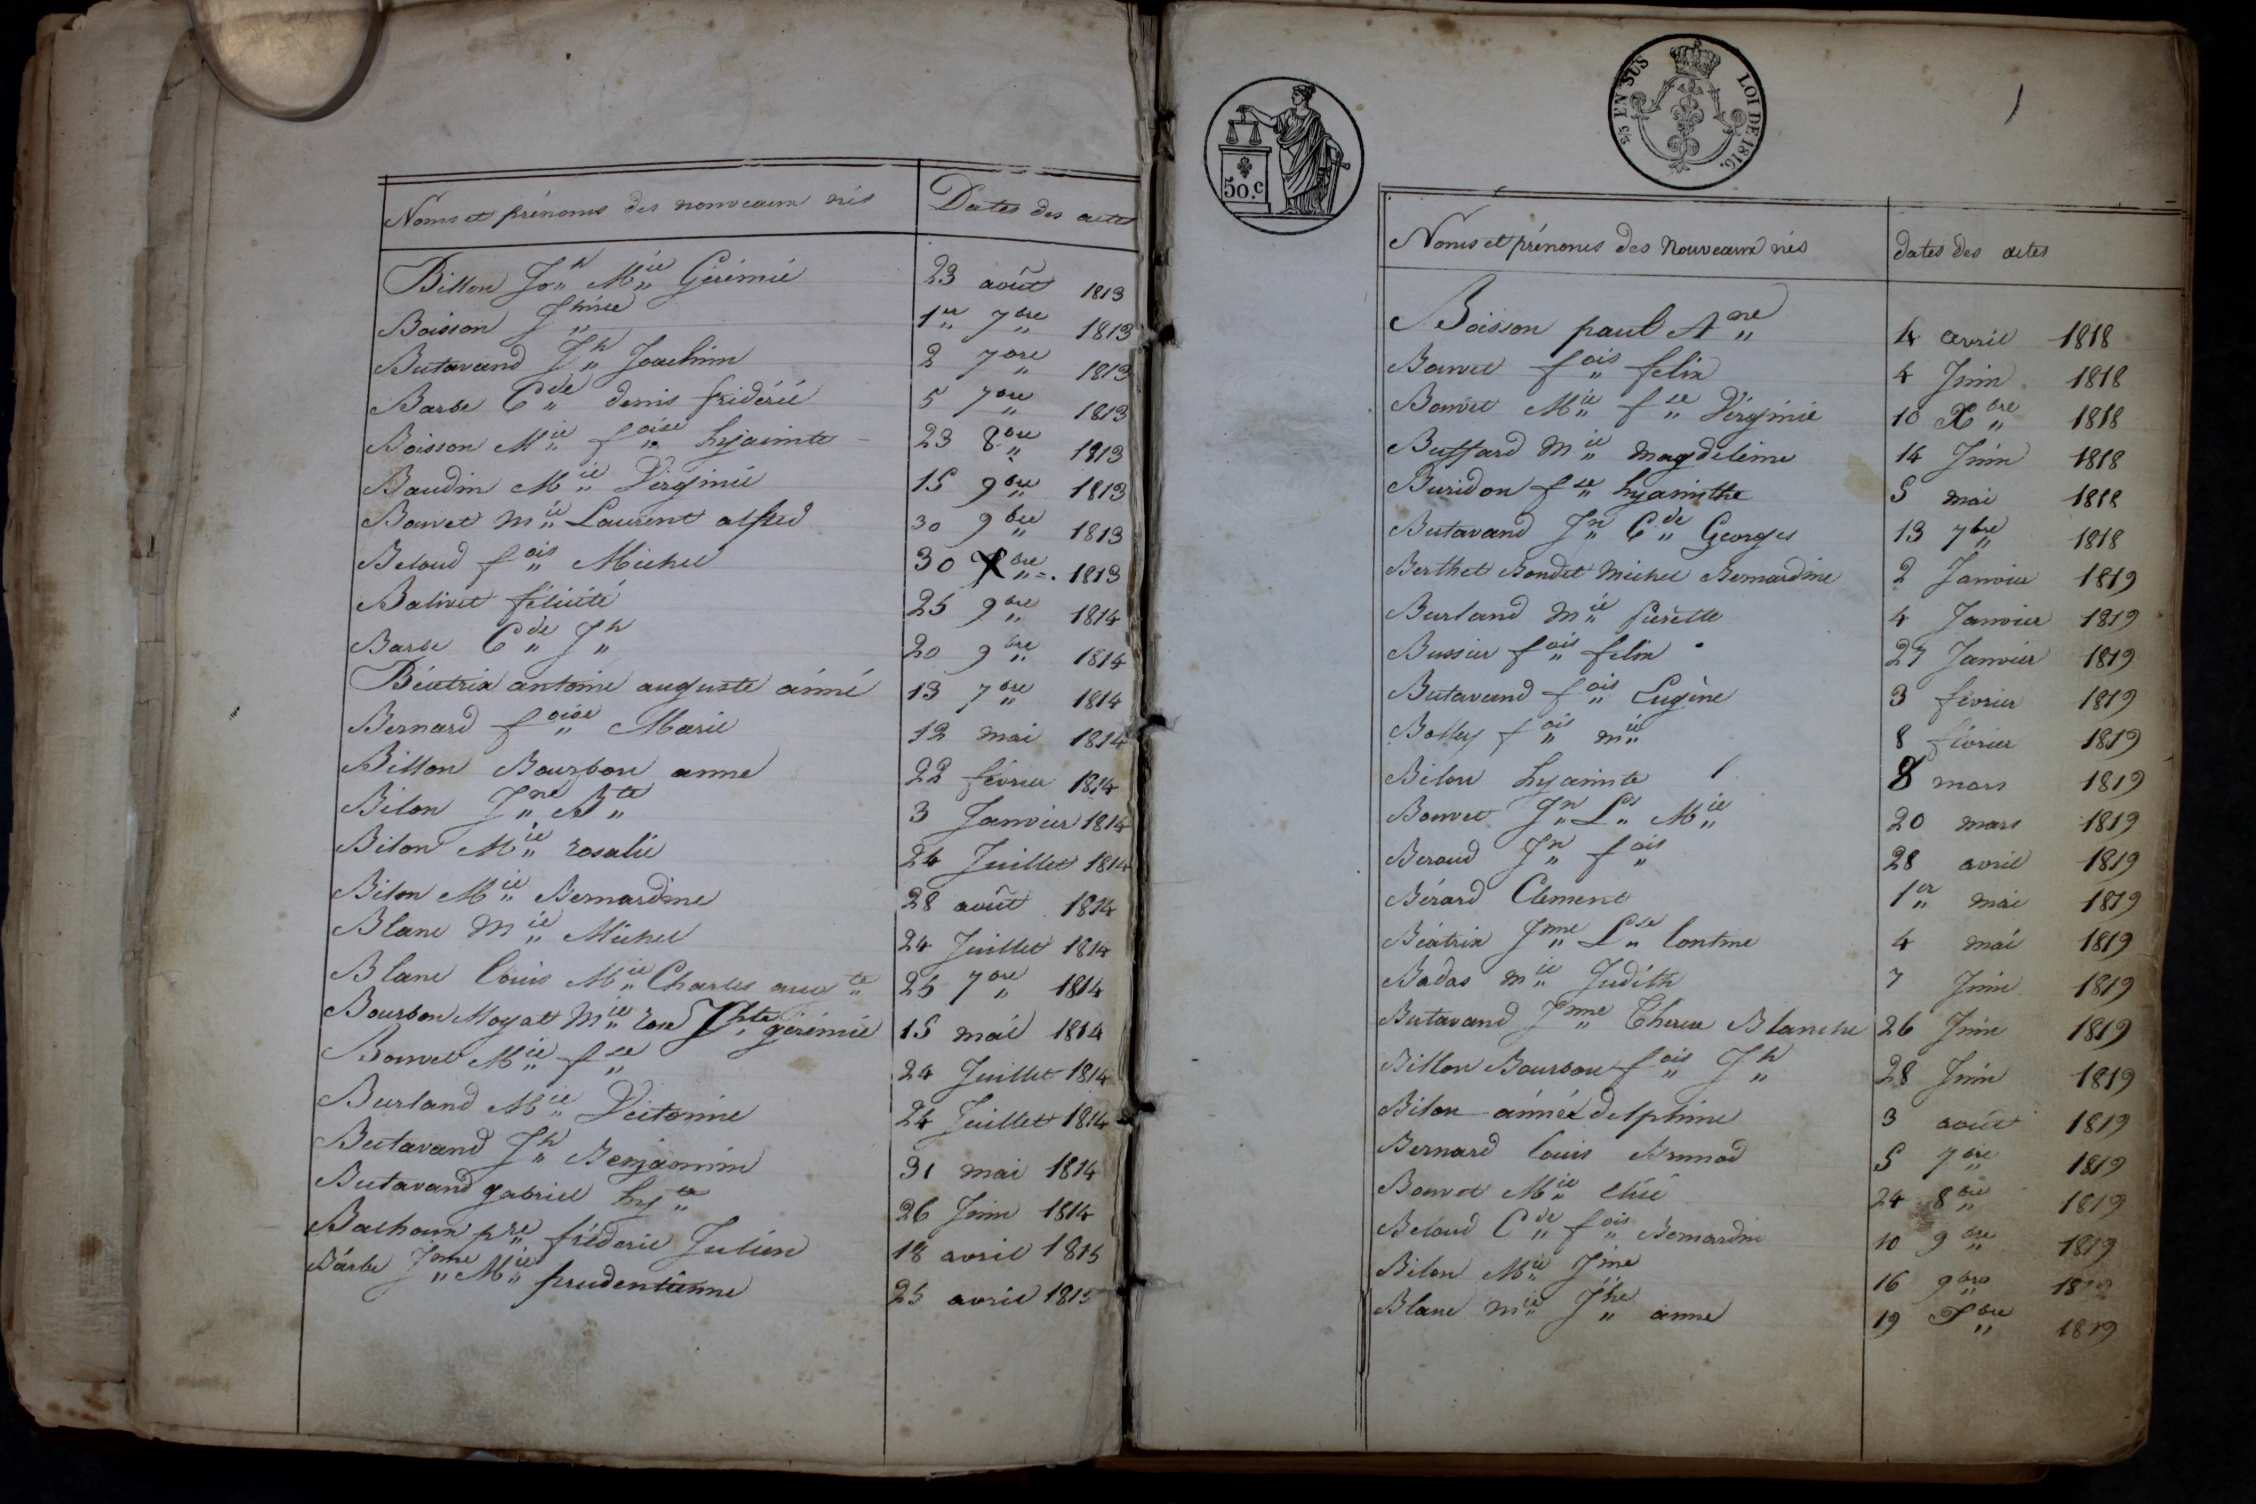 Noms et prénoms des nouveaux nés Dates des actes
Billon Jh Mie Gérémie 23 août 1813
Boisson Jhine 1er 7bre 1813
Butavand Jh Joachim 2 7bre 1813
Barbe Cde denis frédéric 5 7bre 1813
Boisson Mie foise hyacinte 23 8bre 1813
Baudin Mie Virginie 15 9bre 1813
Bouvet Mie Laurent alfred 30 9bre 1813
Beloud fois Michel 30 Xbre 1813
Balivet félicité 25 9bre 1814
Barbe Cde Jh 20 9bre 1814
Béatrix antoine auguste aimé 13 7bre 1814
Bernard foise Marie 12 mai 1814
Billon Bourbon anne 22 février 1814
Bilon Jne Bte 3 Janvier 1814
Bilon Mie rosalie 24 Juillet 1814
Bilon Mie Bernardine 28 août 1814
Blanc Mie Michel 24 Juillet 1814
Blanc louis Mie Charles augte 25 7bre 1814
Bourbon Moyat Mie rose Jhte gérémie 15 mai 1814
Bouvet Mie fse 24 Juillet 1814
Burland Mie Victorine 24 Juillet 1814
Butavand Jh Benjamin 31 mai 1814
Butavand gabriel hyte 26 Juin 1814
Bachoux pre fréderic Julien 18 avril 1815
Barbe Jnne Mie prudentianne 25 avril 1815
50.c
EN SUS LOI DE 1816.
1
Noms et prénoms des Nouveaux nés dates des actes
Boisson paul Ane 4 avril 1818
Bouvet fois felix 4 Juin 1818
Bouvet Mie fse Virginie 10 Xbre 1818
Buffard Mie magdeleine 14 Juin 1818
Buridon fse hyacinthe 5 mai 1818
Butavand Jn Cde Georges 13 7bre 1818
Berthet Bondet Michel Bernardine 2 Janvier 1819
Burland Mie pierette 4 Janvier 1819
Bussier fois felix 27 Janvier 1819
Butavand fois Eugène 3 février 1819
Bolley fois Mie 8 février 1819
Bilon hyacinte 8 mars 1819
Bouvet Jn Ls Mie 20 mars 1819
Beraud Jn fois 28 avril 1819
Bérard Clement 1er mai 1819
Béatrix Jnne Lse 4 mai 1819
Badas Mie Judith 7 Juin 1819
Butavand Jnne Therese Blanche 26 Juin 1819
Billon Bourbon fois Jh 28 Juin 1819
Bilon aimée delphine 3 août 1819
Bernard louis 5 7bre 1819
Bouvet Mie élié 24 8bre 1819
Beloud Cde fois Bernardin 10 9bre 1819
Bilon Mie Jine 16 9bre 1819
Blanc Mie Jhe anne 19 Xbre 1819